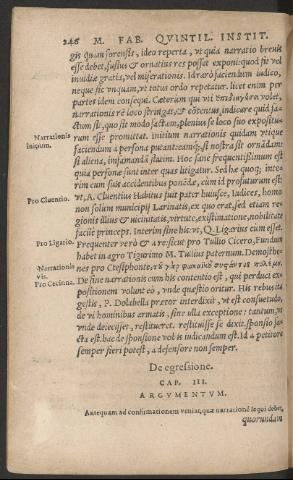 246 M. FAB. QVINTIL. INSTIT.
gis quàm forensis, ideo reperta, vt quia narratio breuis
esse debet, fusius & ornatius res posset exponi: quod fit vel
inuidiæ gratia, vel miserationis. Id rarò faciendum iudico,
neque sic vnquam, vt totus ordo repetatur. licet enim per
partes idem consequi. Cæterum qui vti volet,
narrationis re loco stringat, & contentus, indicare quid fa-
ctum sit, quo sit modo factum, plenius se loco suo expositu-
rum esse promittat. initium narrationis quidam vtique
faciendum à persona putant: eamque, si nostra sit ornandam:
si aliena, infamandā statim. Hoc sanè frequentissimum est
quia personæ sunt inter quas litigatur. Sed hæ quoque inte-
rim cum suis accidentibus ponēdæ, cùm id profuturum est:
vt, A. Cluentius Habitus fuit pater huiusce, Iudices, homo
non solum municipij Larinatis, ex quo erat, sed etiam re-
gionis illius & vicinitatis, virtute, existimatione, nobilitate
facilè princeps. Interim sine his: vt, Q. Ligarius cum esset.
Frequenter verò & à re: sicut pro Tullio Cicero, Fundum
habet in agro Tigurino M. Tullius paternum. Demosthe-
nes pro Ctesiphonte,
De fine narrationis cum his contentio est, qui perduci ex-
positionem volunt eò, vnde quæstio oritur. His rebus ita
gestis, P. Dolabella prætor interdixit, vt est consuetudo,
de vi hominibus armatis, sine vlla exceptione: tantum, vt
vnde deiecisset, restitueret. restituisse se dixit. sponsio fa-
cta est. hac de sponsione vobis iudicandum est. Id à petitore
semper fieri potest, à defensore non semper.
Narrationis
Initium.
Pro Cluentio.
Pro Ligario.
Narrationis
vis.
Pro Cecinna.
De egressione.
CAP. III.
ARGVMENTVM.
Antequam ad confirmationem veniat, quæ narrationē sequi debet,
quorundam